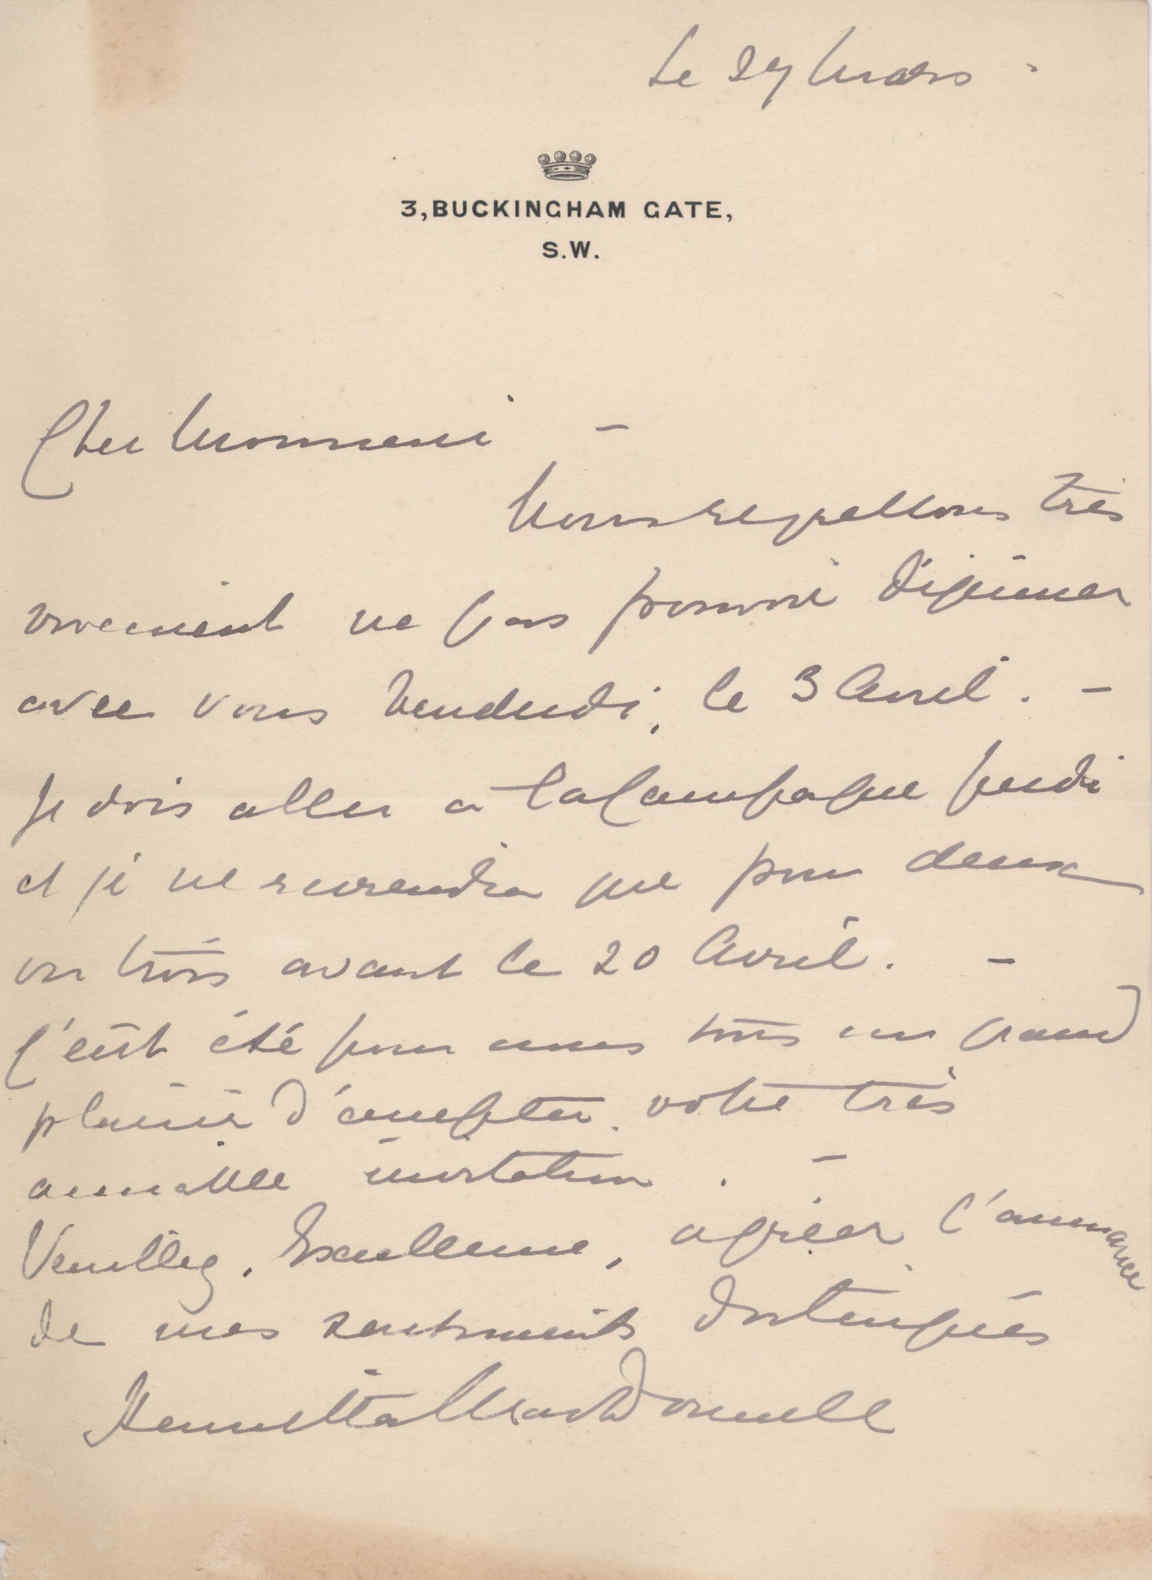 Le 27 Mars
3, BUCKINGHAM GATE,
S.W.
Cher Monsieur –
Nous regrettons très
vivement ne pas pouvoir déjeuner
avec vous Vendredi, le 3 Avril. –
Je dois aller à la Campagne Jeudi
et je ne reviendra que pour deux
ou trois avant le 20 Avril. –
C'eût été pour nous tous un grand
plaisir d'accepter votre très
aimable invitation. –
Veuillez, Excellence, agréer l'assurance
de mes sentiments distingués
Henrietta MacDonnell